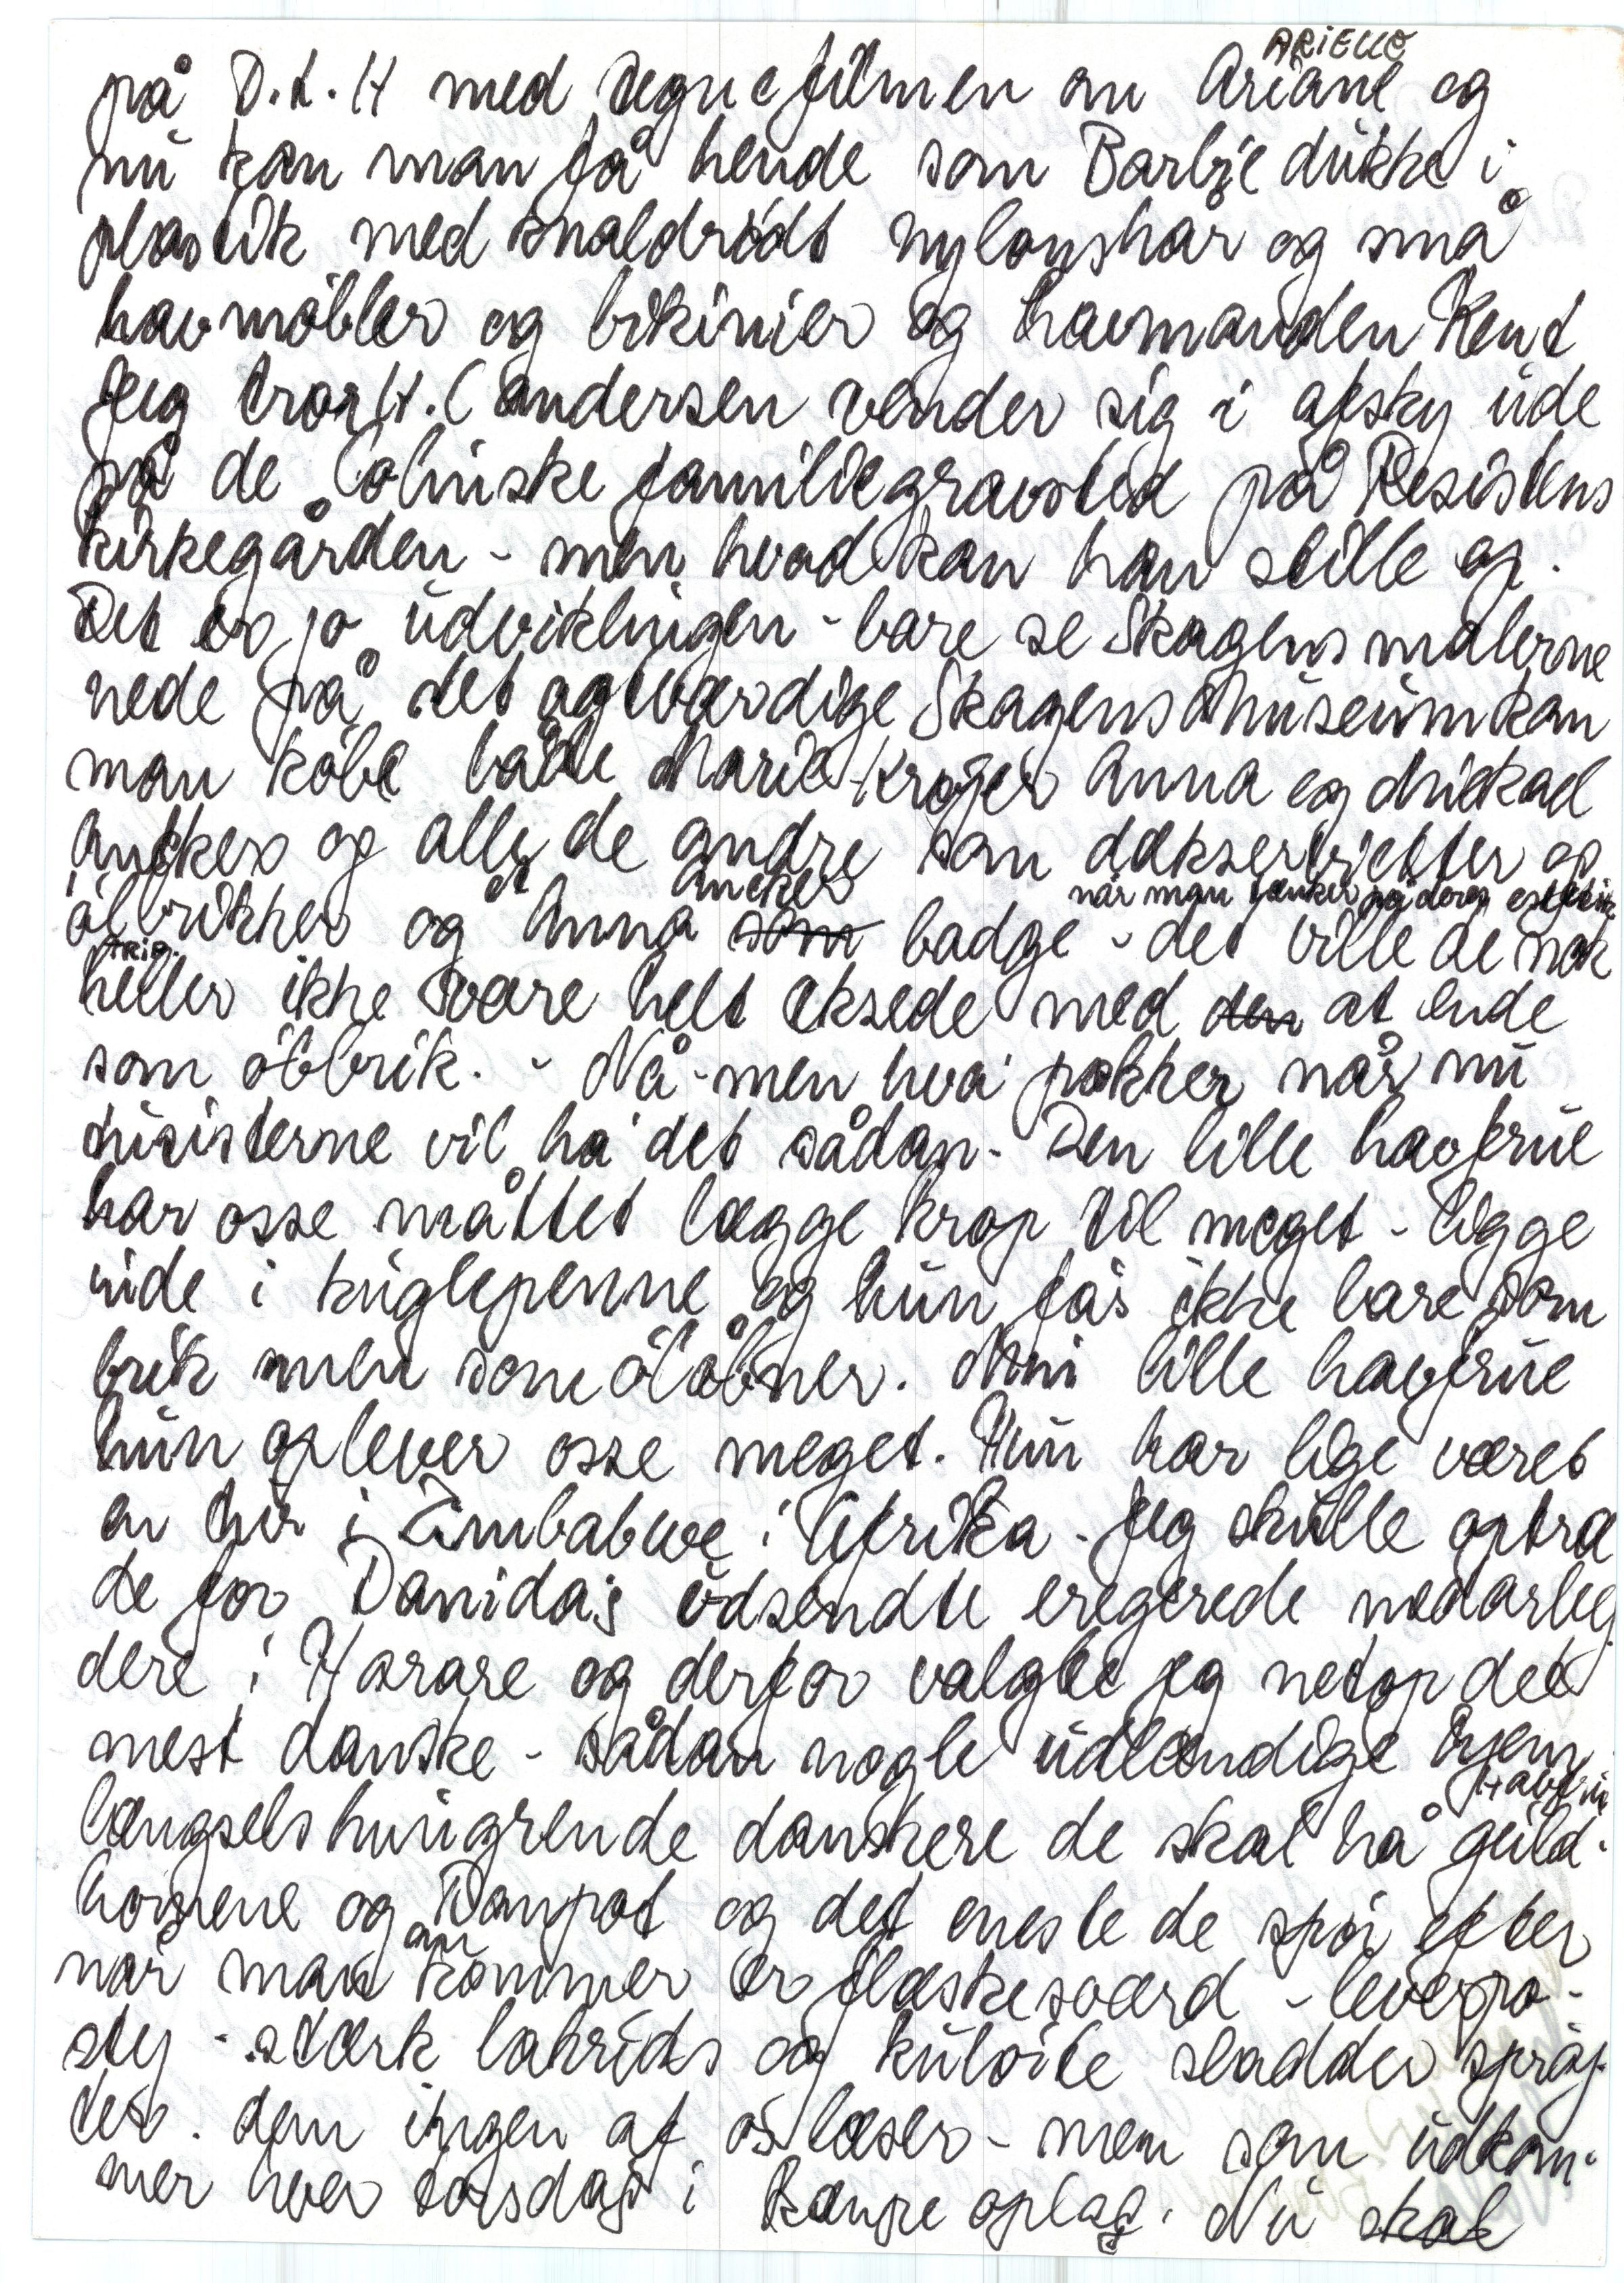 ARIELLE
på D.t.H med tegnefilmen om Ariane og
nu kan man få hende som Barbie dukke i
plastik med knaldrødt nylonshår og små
havmøbler og bikinier og havmanden Kent
Jeg tror H.C andersen vender sig i afsky ude
på de Colinske familiegravsted på Assistens
kirkegården - men hvad kan han stille op.
Det er jo udviklingen - bare se Skagensmalerne
nede på det agtværdige Skagens Museum kan
man købe både Marie Krøjer Anna og Mickael
Ancker og alle de andre som dækservietter og
ølbrikker og et Anna Ancher som badge - det ville de nok
når man tænker på deres estetik
heller ikke være helt eksede med den at ende
som ølbrik. - Nå - men hva' pokker når nu
turisterne vil ha' det sådan - Den lille havfrue
har osse måttet lægge krop til meget - ligge
inde i kuglepenne og hun fås ikke bare som
brik men som øloplukker. Min lille havfrue
hun oplever osse meget. Hun har lige været
en tur i Zimbabwe i Afrika. Jeg skulle optræ
de for Danida's udsendte medarbej
dere i Harare og derfor valgte jeg netop det
mest danske - sådan nogle udlændige hjem
længselshungrende danskere de skal ha guld-
Havfru
hornene og Danpot og det eneste de spør efter
når man ankommer er flæskesværd - leverpo-
stej - stærk lakrids og kulørte sladder sprøj-
ter. dem ingen af os læser - men som udkom-
mer hver torsdag i kæmpe oplag. Nu skal